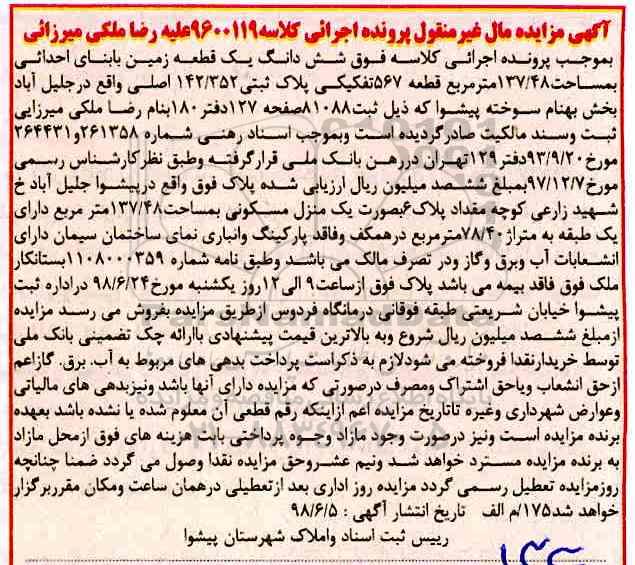 آگهی مزایده مال غیرمنقول پرونده اجرائی کلاسه۹۶۰۰۱۱۹علیه رضا ملکی میرزائی
بموجب پرونده اجرائی کلاسه فوق شش دانگ یک قطعه زمین بابنای احداثی
بمساحت۱۳۷/۴۸مترمربع قطعه ۵۶۷تفکیکی پلاک ثبتی۱۴۲/۳۵۲ اصلی واقع درجلیل آباد
بخش بهنام سوخته پیشوا که ذیل ثبت۸۱۰۸۸صفحه ۱۲۷دفتر۱۸۰بنام رضا ملکی میرزایی
ثبت وسند مالکیت صادرگردیده است وبموجب اسناد رهنی شماره ۲۶۱۳۵۸و۲۶۴۴۳۱
مورخ۹۳/۹/۲۰دفتر۱۲۹تهران دررهن بانک ملی قرارگرفته وطبق نظرکارشناس رسمی
مورخ۹۷/۱۲/۷بمبلغ ششصد میلیون ریال ارزیابی شده پلاک فوق واقع درپیشوا جلیل آباد خ
شهید زارعی کوچه مقداد پلاک۶بصورت یک منزل مسکونی بمساحت۱۳۷/۴۸متر مربع دارای
یک طبقه به متراژ۷۸/۴۰مترمربع درهمکف وفاقد پارکینگ وانباری نمای ساختمان سیمان دارای
انشعابات آب وبرق وگاز ودر تصرف مالک می باشد وطبق نامه شماره ۱۱۰۸۰۰۰۳۵۹بستانکار
ملک فوق فاقد بیمه می باشد پلاک فوق ازساعت۹ الی۱۲روز یکشنبه مورخ۹۸/۶/۲۴ دراداره ثبت
پیشوا خیابان شریعتی طبقه فوقانی درمانگاه فردوس ازطریق مزایده بفروش می رسد مزایده
ازمبلغ ششصد میلیون ریال شروع وبه بالاترین قیمت پیشنهادی باارائه چک تضمینی بانک ملی
توسط خریدارنقدا فروخته می شودلازم به ذکراست پرداخت بدهی های مربوط به آب. برق. گازاعم
ازحق انشعاب ویاحق اشتراک ومصرف درصورتی که مزایده دارای آنها باشد ونیزبدهی های مالیاتی
وعوارض شهرداری وغیره تاتاریخ مزایده اعم ازاینکه رقم قطعی آن معلوم شده یا نشده باشد بعهده
برنده مزایده است ونیز درصورت وجود مازاد وجوه پرداختی بابت هزینه های فوق ازمحل مازاد
به برنده مزایده مسترد خواهد شد ونیم عشروحق مزایده نقدا وصول می گردد ضمنا چنانچه
روزمزایده تعطیل رسمی گردد مزایده روز اداری بعد ازتعطیلی درهمان ساعت ومکان مقرربرگزار
خواهد شد۱۷۵/م الف تاریخ انتشار آگهی : ۹۸/۶/۵
رییس ثبت اسناد واملاک شهرستان پیشوا